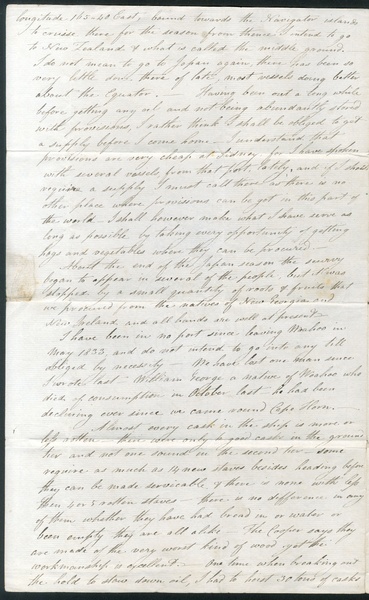 longitude 165-40 East, bound towards the Navigator islands
to cruise there for the season from thence I intend to go
to New Zealand & what is called the middle ground.
I do not mean to go to Japan again, there has been so
very little done there of late, most vessels doing better
about the Equator. — Having been out a long while
before getting any oil and not being abundantly stored
with provisions, I rather think I shall be obliged to get
a supply before I come home — I understand that
provisions are very cheap at Sidney for I have spoken
with several vessels from that port lately, and if I should
require a supply I must call there as there is no
other place where provisions can be got in this part of
the world. I shall however make what I have serve as
long as possible by taking every opportunity of getting
hogs and vegetables where they can be procured —
About the end of the Japan season the scurvy
began to appear in several of the people, but it was
stopped by a small quantity of roots & fruits that
we procured from the natives of New Georgia and
New Ireland, and all hands are well at present —
I have been in no port since leaving Woahoo in
May 1833, and do not intend to go into any till
obliged by necessity — We have lost one man since
I wrote last — William George a native of Woahoo who
died of consumption in October last — he had been
declining ever since we came round Cape Horn.
Almost every cask in the ship is more or
less rotten — there were only 10 good casks in the ground
tier and not one sound in the second tier — some
require as much as 14 new staves besides heading before
they can be made servicable & there is none with less
than 4 or 5 rotten staves — there is no difference in any
of them whether they have had bread in or water or
been empty they are all alike — The Cooper says they
are made of the very worst kind of wood yet the
workmanship is excellent — One time when breaking out
the hold to stow down oil, I had to hoist 30 tons of casks